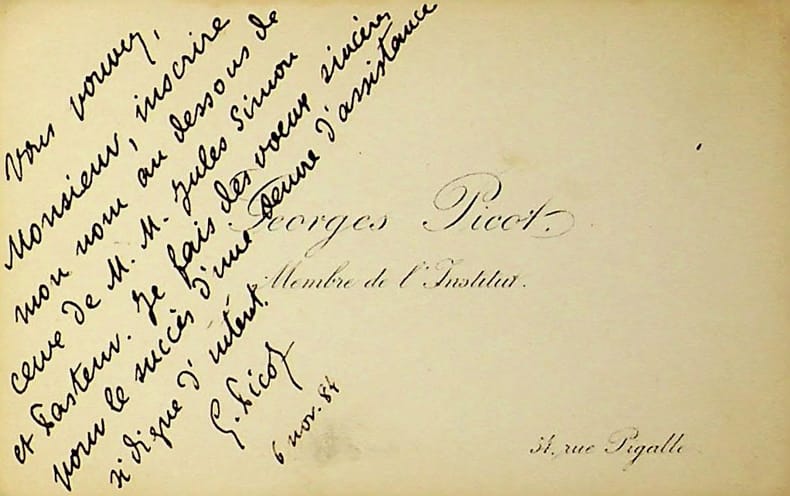 Vous pouvez,
Monsieur, inscrire
mon nom au dessous de
ceux de M. M. Jules Simon
et Pasteur. Je fais des voeux sincères
pour le succès d'une oeuvre d'assistance
si digne d'intérêt.
G. Picot
6 nov. 84
Georges Picot.
Membre de l'Institut.
54, rue Pigalle